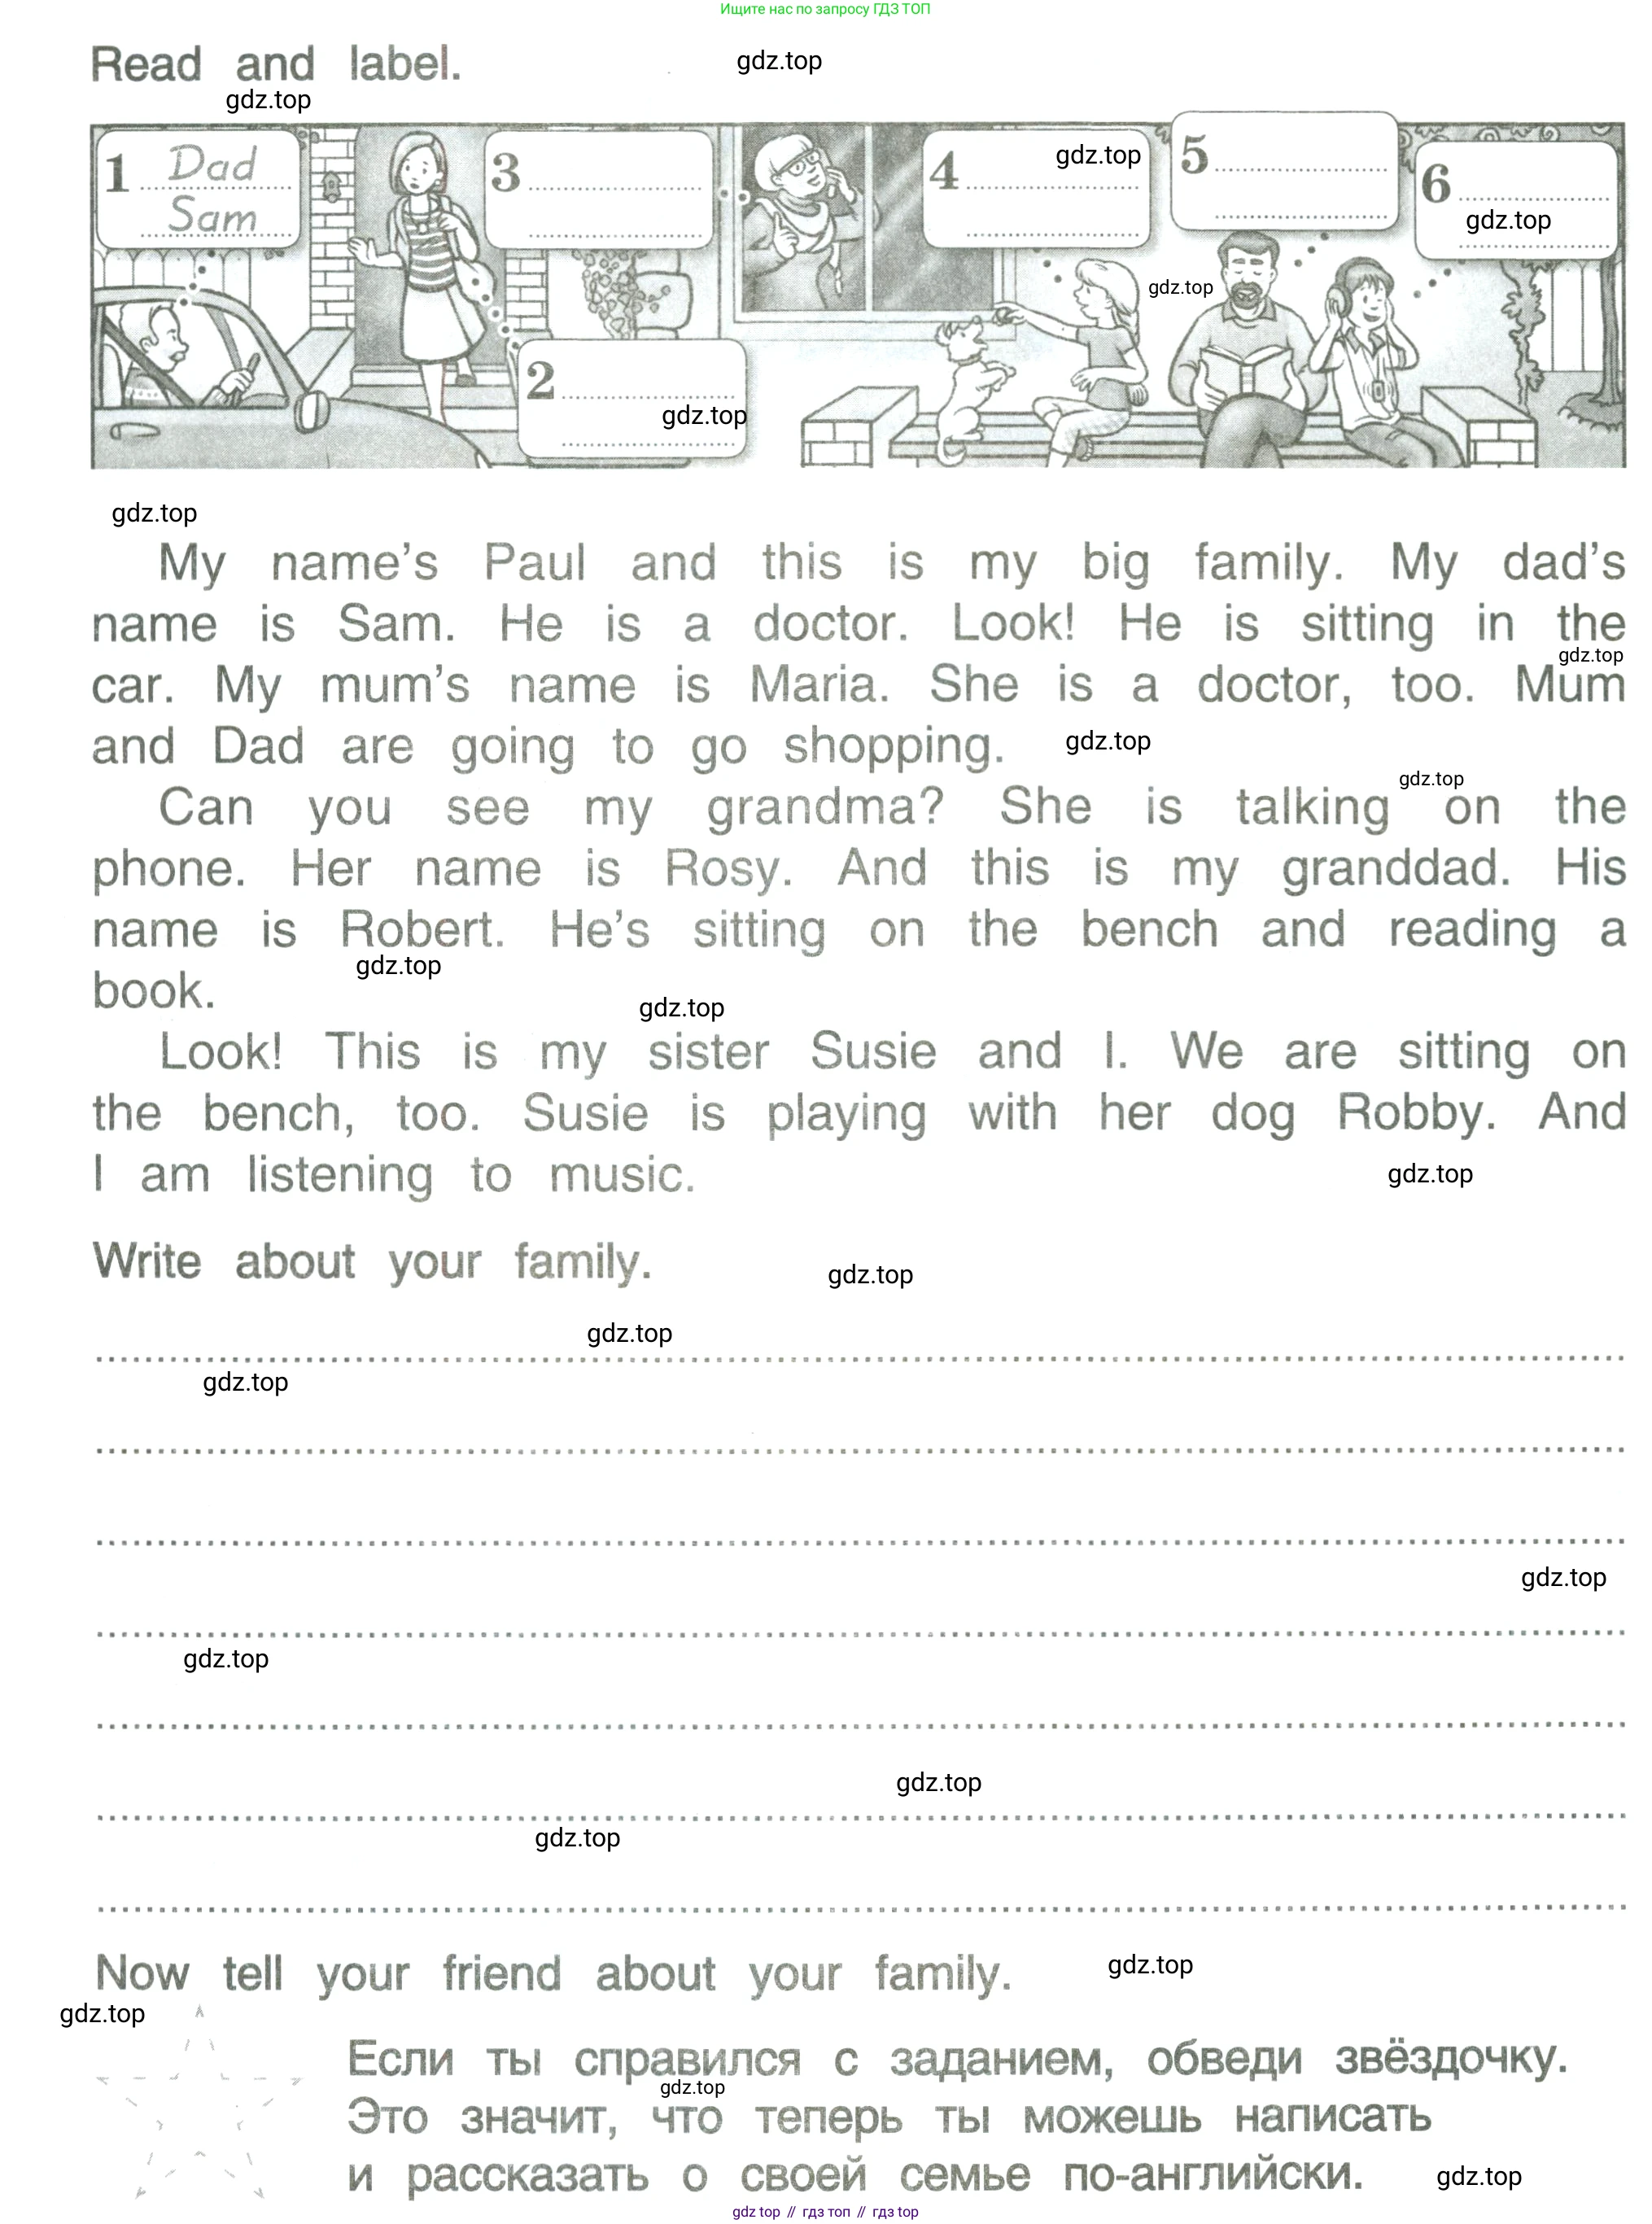 Ищите нас по запросу ГДЗ ТОП
Read and label.
gdz.top
gdz.top
1 Dad
Sam
3
4
gdz.top
5
6
gdz.top
gdz.top
2
gdz.top
gdz.top
My name's Paul and this is my big family. My dad's
name is Sam. He is a doctor. Look! He is sitting in the
gdz.top
car. My mum's name is Maria. She is a doctor, too. Mum
and Dad are going to go shopping.
gdz.top
gdz.top
Can you see my grandma? She is talking on the
phone. Her name is Rosy. And this is my granddad. His
name is Robert. He's sitting on the bench and reading a
gdz.top
book.
gdz.top
Look! This is my sister Susie and I. We are sitting on
the bench, too. Susie is playing with her dog Robby. And
I am listening to music.
gdz.top
Write about your family.
gdz.top
gdz.top
gdz.top
gdz.top
gdz.top
gdz.top
gdz.top
Now tell your friend about your family.
gdz.top
gdz.top
Если ты справился с заданием, обведи звёздочку.
gdz.top
Это значит, что теперь ты можешь написать
и рассказать о своей семье по-английски.
gdz.top
gdz top // гдз топ // гдз top